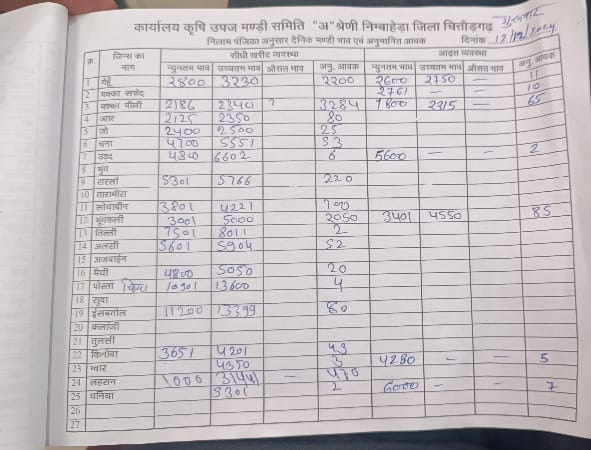 गुरुवार
कार्यालय कृषि उपज मण्डी समिति "अ" श्रेणी निम्बाहेड़ा जिला चित्तौड़गढ़
निलाम पंजिका अनुसार दैनिक मण्डी भाव एवं अनुमानित आवक दिनांक 12/12/2024
क्र. जिन्स का नाम सीधी खरीद व्यवस्था आढ़त व्यवस्था
न्यूनतम भाव उच्चतम भाव औसत भाव अनु. आवक न्यूनतम भाव उच्चतम भाव औसत भाव अनु. आवक
1 गेहूँ 2800 3230 2200 2600 2750 — 11
2 मक्का सफेद 2761 — — 10
3 मक्का पीली 2186 2340 ? 3284 1800 2315 — 65
4 ज्वार 2125 2350 80
5 जौ 2400 2500 25
6 चना 4700 5551 53
7 उड़द 4800 6602 6 5600 — — 2
8 मूंग
9 सरसों 5301 5766 220
10 तारामीरा
11 सोयाबीन 3801 4221
12 मूंगफली 3001 5000 2050 3401 4550 85
13 तिल्ली 7501 8011 2
14 अलसी 5601 5904 52
15 अजवाईन
16 मैथी 4800 5050 20
17 पोस्ता 13600 4
18 सुवा
19 ईसबगोल 11200 13399 60
20 कलौंजी
21 तुलसी
22 किनोवा 3651 4201 43
23 ग्वार 4350 3 4280 — — 5
24 लहसन 1000 — 470
25 धनिया 5301 2 6000 — — 7
26
27